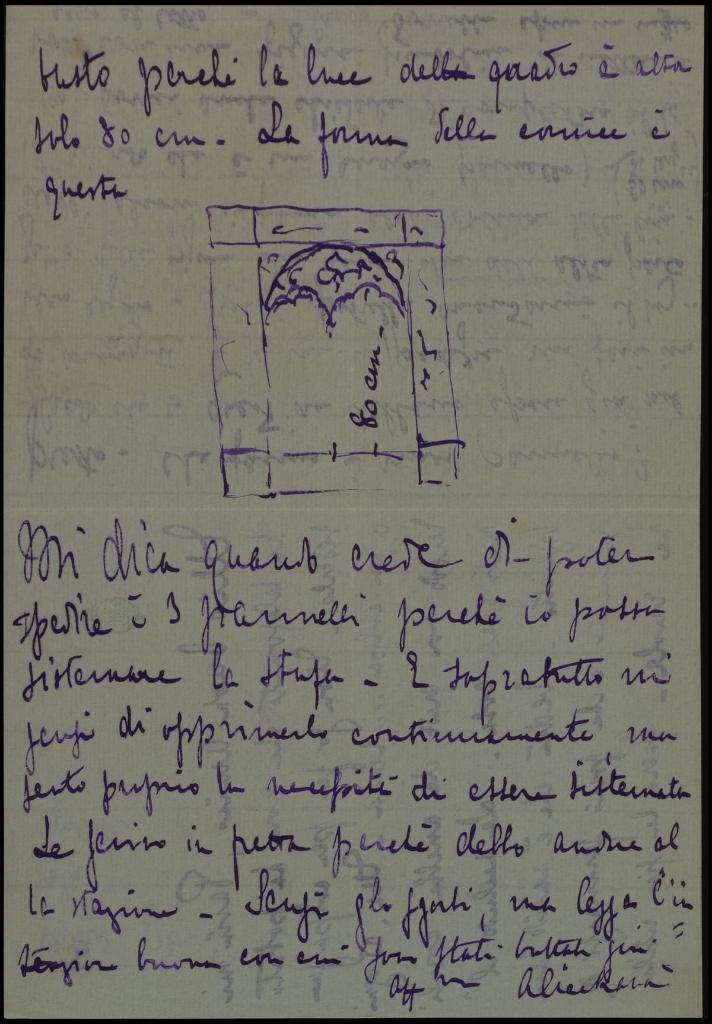 busto perché la luce della quadro è alta
solo 80 cm - La forma della cornice è
questa
80 cm -
Mi dica quando crede di poter
spedire i 3 pannelli perché io possa
sistemare la stufa - E sopratutto mi
scusi di opprimerlo continuamente, ma
sento proprio la necessità di essere sistemata
Le scrivo in fretta perché debbo andare al
la stazione - Scusi gli sgorbi, ma legga l'in
tenzione buona con cui sono stati buttati giù =
aff